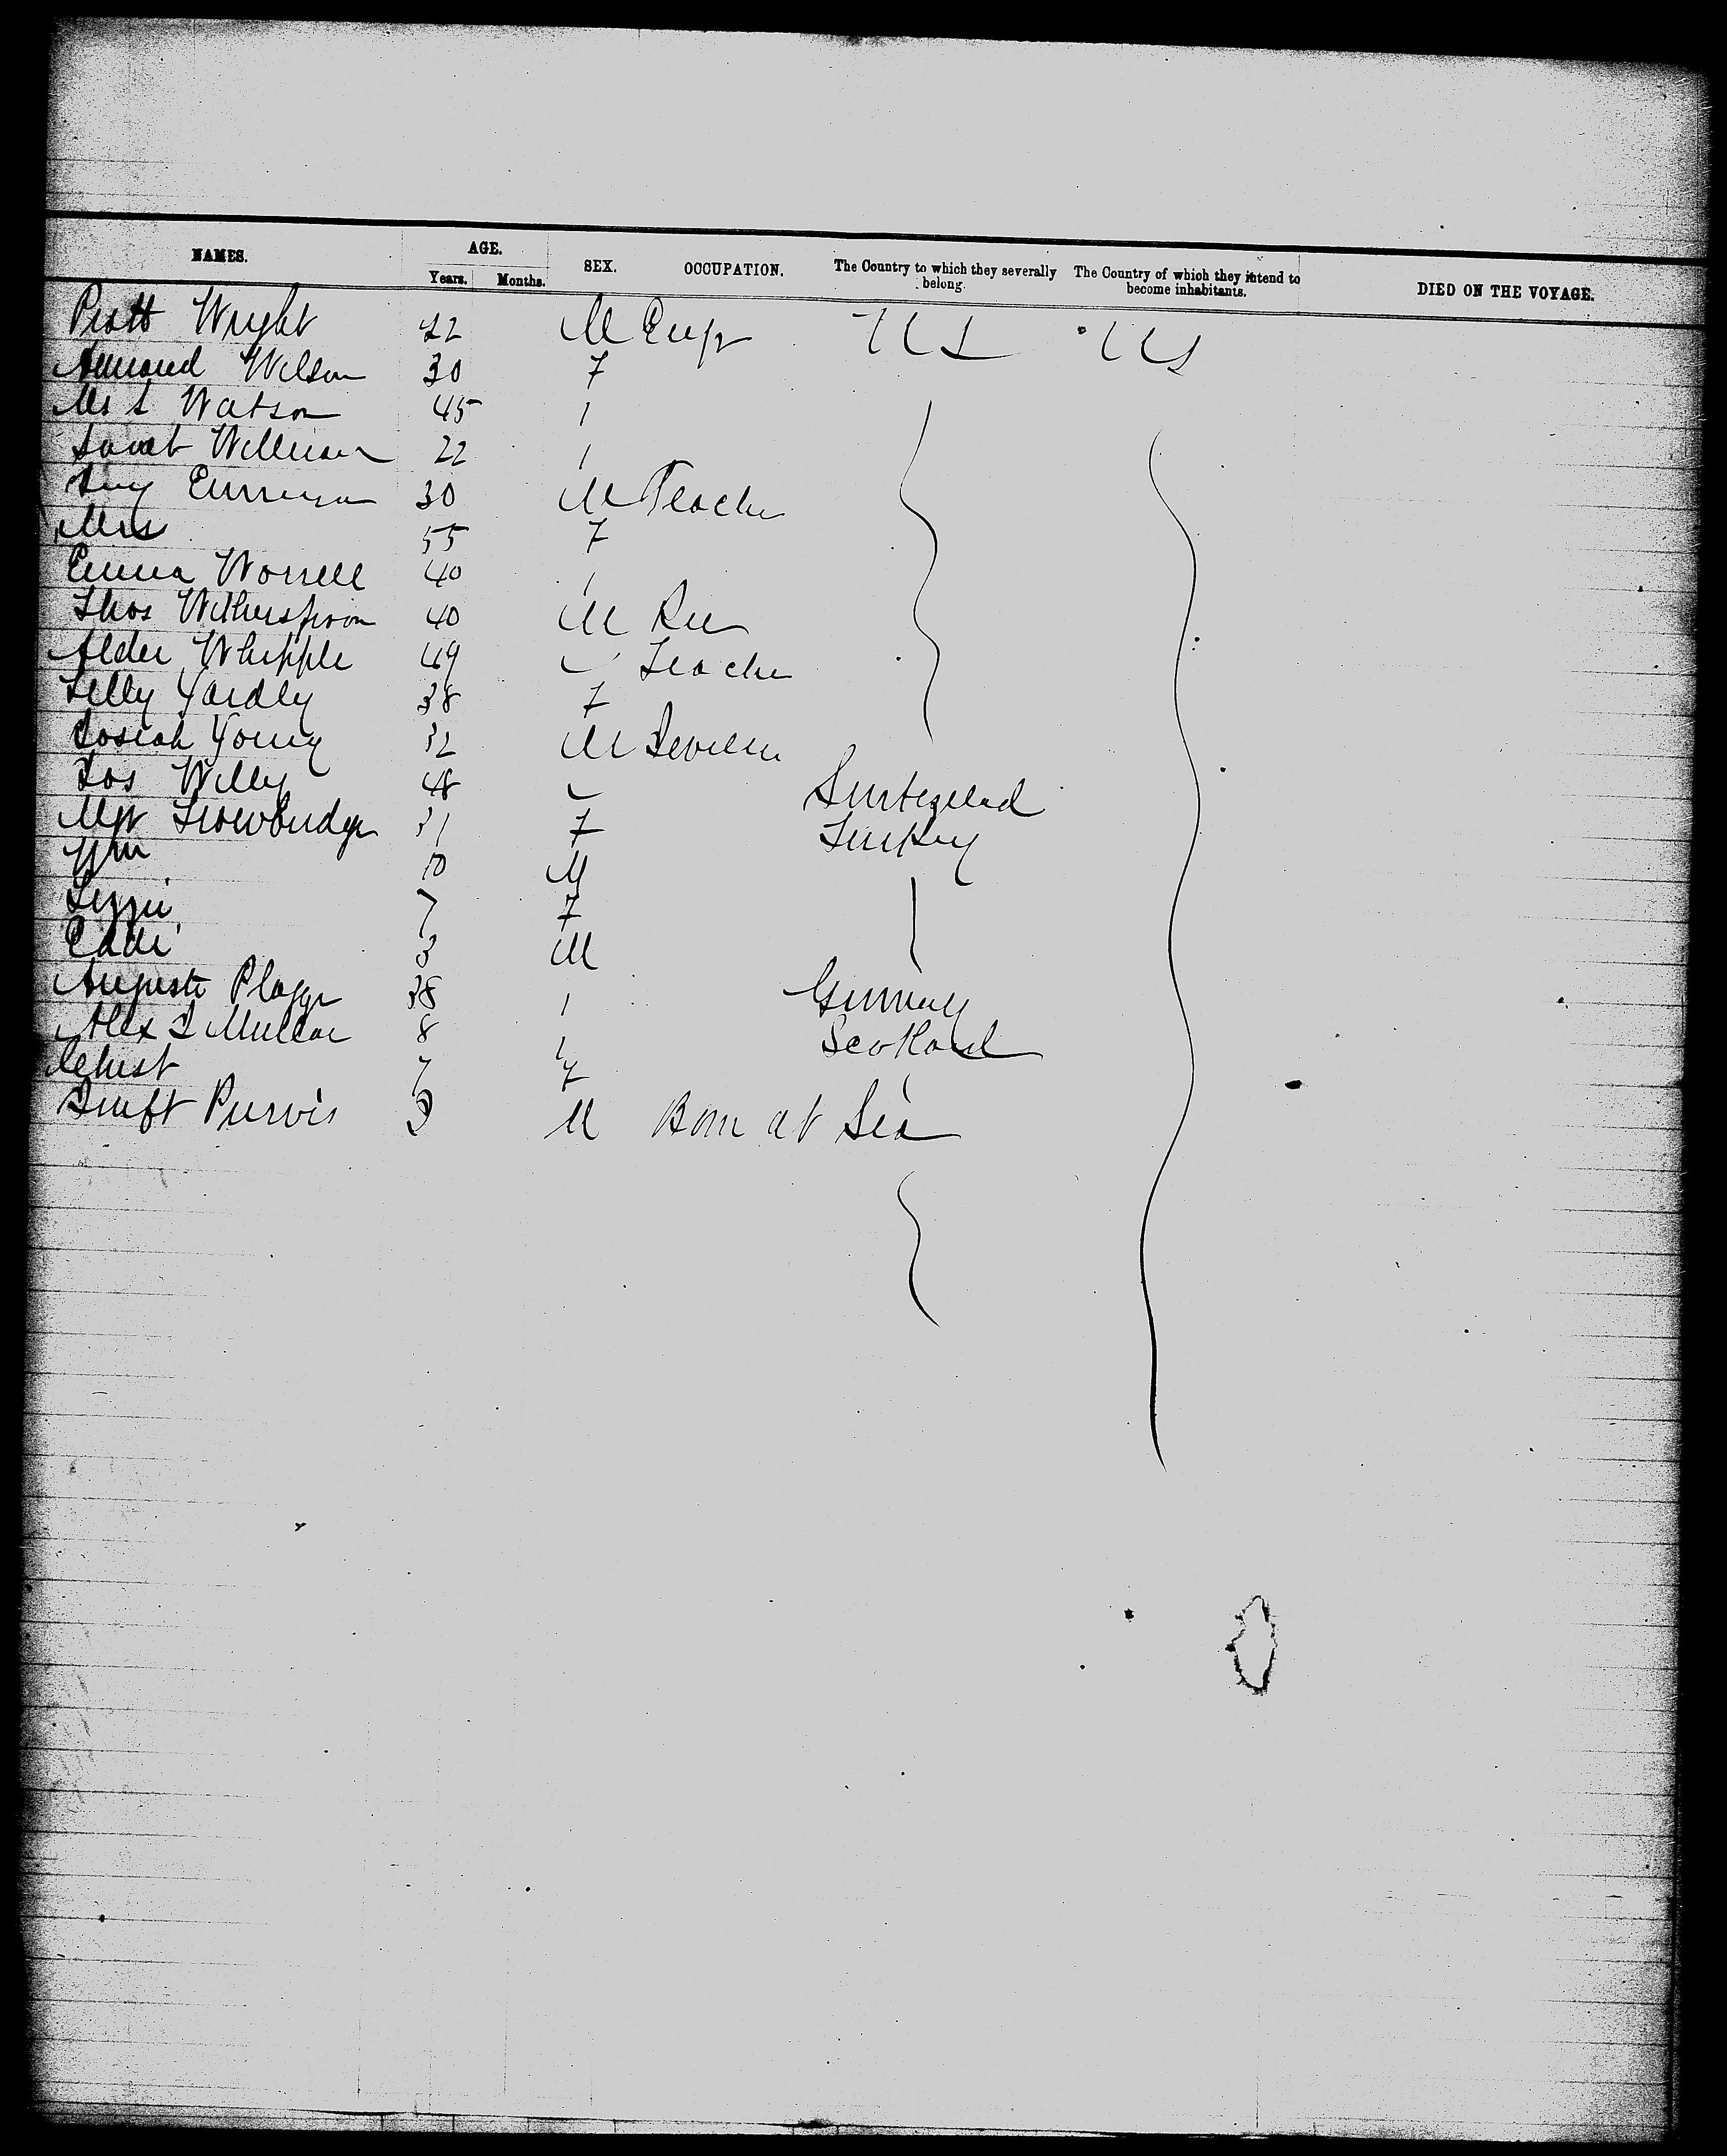 NAMES. AGE. SEX. OCCUPATION. The Country to which they severally belong. The Country of which they intend to become inhabitants. DIED ON THE VOYAGE.
Years. Months.
Pratt Wright 22 M US US
Wilson 30 F
Mrs S Watson 45 "
Sarah 22 "
30 M Teacher
Mrs 55 F
Emma Worrell 40 "
Thos Witherspoon 40 M Rev
Alden Whipple 49 " Teacher
Lilly Yardly 38 F
Josiah Young 32 M
Jos Willy 48 " Switzerland
Mrs Trowbridge 31 F Turkey
Wm 10 M
Lizzie 7 F
Eddie 3 M
Auguste Plagge 38 " Germany
Alex 8 " Scotland
7 F "
Swift Purvis M Born at Sea